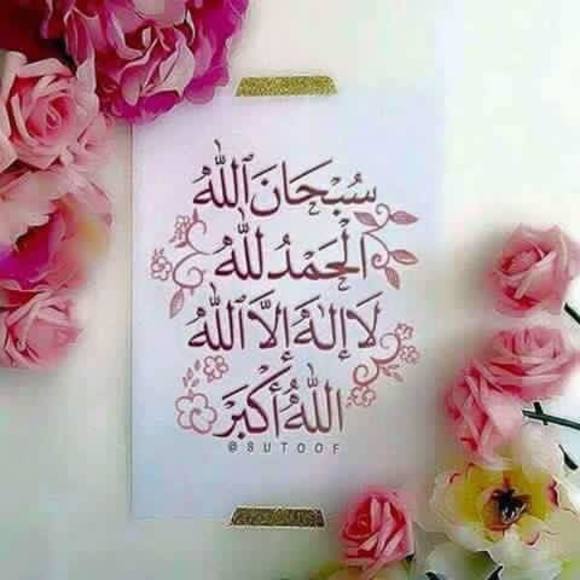 سُبْحَانَ ٱللَّهُ
الْحَمْدُ لِلَّهُ
لَا إِلٰهَ إِلَّا ٱللَّهُ
اللَّهُ أَكْبَرَ
@SUTOOF